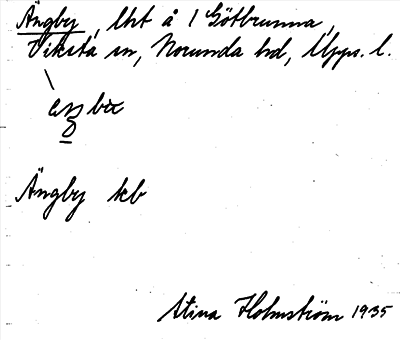 Ängby, lht å 1 Götbrunna,
Viksta sn, Norunda hd, Upps. l.
Ängby kb
Stina Holmström 1935